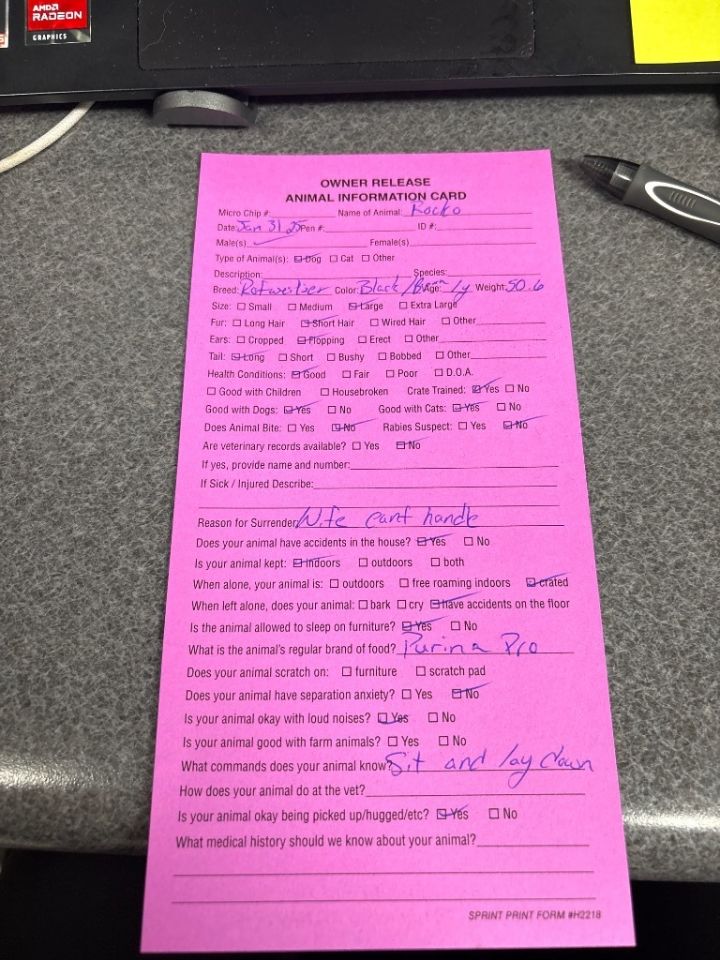 AMD
RADEON
GRAPHICS
OWNER RELEASE
ANIMAL INFORMATION CARD
Micro Chip #: Name of Animal: Rocko
Date: Jan 31 25 Pen #: ID #:
Male(s) ✓ Female(s)
Type of Animal(s): ☑ Dog ☐ Cat ☐ Other
Description: Species:
Breed: Rotweiler Color: Black / Brn Age: 1y Weight: 50.6
Size: ☐ Small ☐ Medium ☑ Large ☐ Extra Large
Fur: ☐ Long Hair ☑ Short Hair ☐ Wired Hair ☐ Other
Ears: ☐ Cropped ☑ Flopping ☐ Erect ☐ Other
Tail: ☑ Long ☐ Short ☐ Bushy ☐ Bobbed ☐ Other
Health Conditions: ☑ Good ☐ Fair ☐ Poor ☐ D.O.A.
☐ Good with Children ☐ Housebroken Crate Trained: ☑ Yes ☐ No
Good with Dogs: ☑ Yes ☐ No Good with Cats: ☑ Yes ☐ No
Does Animal Bite: ☐ Yes ☑ No Rabies Suspect: ☐ Yes ☑ No
Are veterinary records available? ☐ Yes ☑ No
If yes, provide name and number:
If Sick / Injured Describe:
Reason for Surrender Wife cant handle
Does your animal have accidents in the house? ☑ Yes ☐ No
Is your animal kept: ☑ indoors ☐ outdoors ☐ both
When alone, your animal is: ☐ outdoors ☐ free roaming indoors ☑ crated
When left alone, does your animal: ☐ bark ☐ cry ☑ have accidents on the floor
Is the animal allowed to sleep on furniture? ☑ Yes ☐ No
What is the animal's regular brand of food? Purina Pro
Does your animal scratch on: ☐ furniture ☐ scratch pad
Does your animal have separation anxiety? ☐ Yes ☑ No
Is your animal okay with loud noises? ☑ Yes ☐ No
Is your animal good with farm animals? ☐ Yes ☐ No
What commands does your animal know? Sit and lay down
How does your animal do at the vet?
Is your animal okay being picked up/hugged/etc? ☑ Yes ☐ No
What medical history should we know about your animal?
SPRINT PRINT FORM #H2218